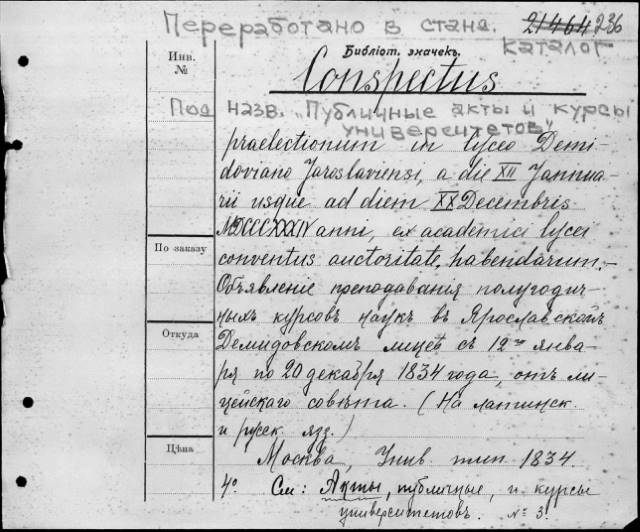 Переработано в станд. 21464 236
каталог
Инв. №
Библіот. значекъ.
Conspectus
Под назв. "Публичные акты и курсы
университетов"
praelectionum in lyceo Demi-
doviano Jaroslaviensi, a die XII Jannua-
rii usque ad diem XX Decembris
MDCCCXXXIV anni, ex academici lycei
По заказу
conventus auctoritate, habendarum. –
Объявленіе преподаванія полугодич-
ныхъ курсовъ наукъ въ Ярославскомъ
Откуда
Демидовскомъ лицеѣ съ 12го янва-
ря по 20 декабря 1834 года, отъ ли-
цейскаго совѣта. (На латинск.
и русск. язз.)
Цѣна
Москва, Унив. тип. 1834.
4°. См: Акты, публичные, и курсы
университетовъ. № 3.